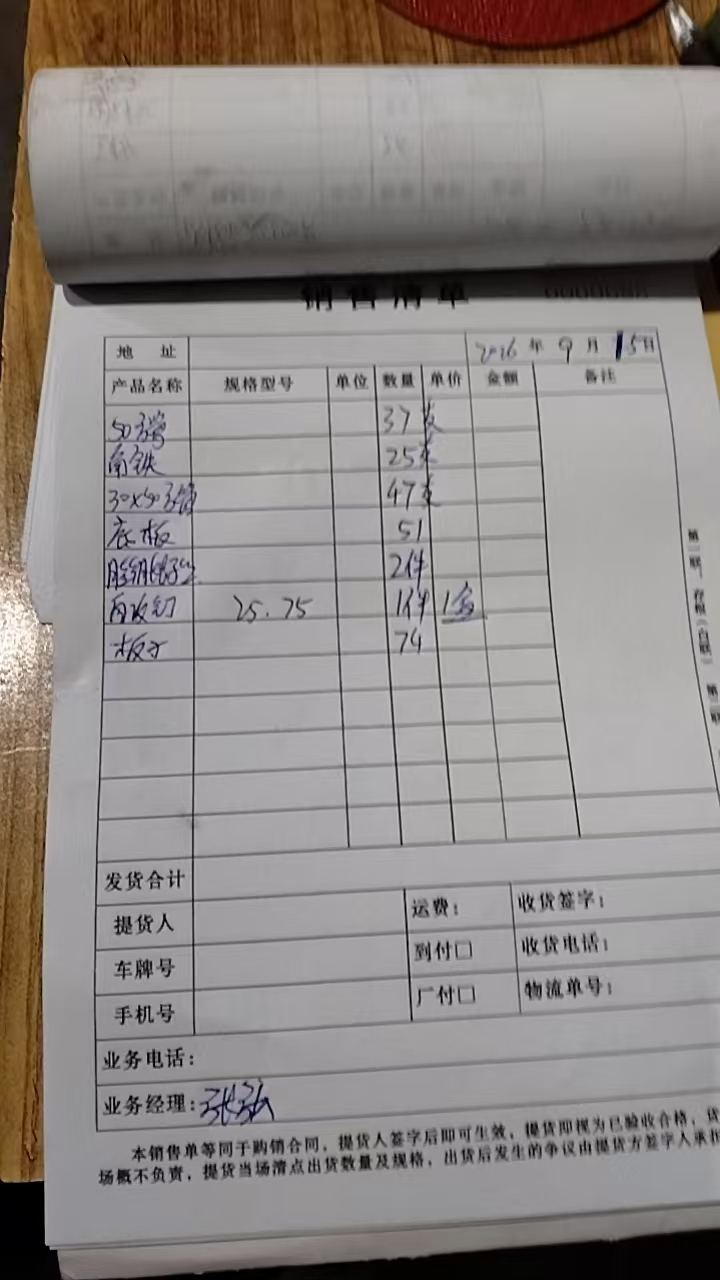 销售清单
地 址 2026 年 9 月 15日
产品名称 规格型号 单位 数量 单价 金额 备注
50方管 37支
角铁 25支
30×50方管 47支
底板 51
2件
自攻钉 25.75 1件 1盒
板子 74
发货合计
提货人 运费: 收货签字:
车牌号 到付□ 收货电话:
手机号 厂付□ 物流单号:
业务电话:
业务经理:张弘
本销售单等同于购销合同,提货人签字后即可生效,提货即视为已验收合格,货
场概不负责,提货当场清点出货数量及规格,出货后发生的争议由提货方签字人承担
第一联:存根(白联) 第二联